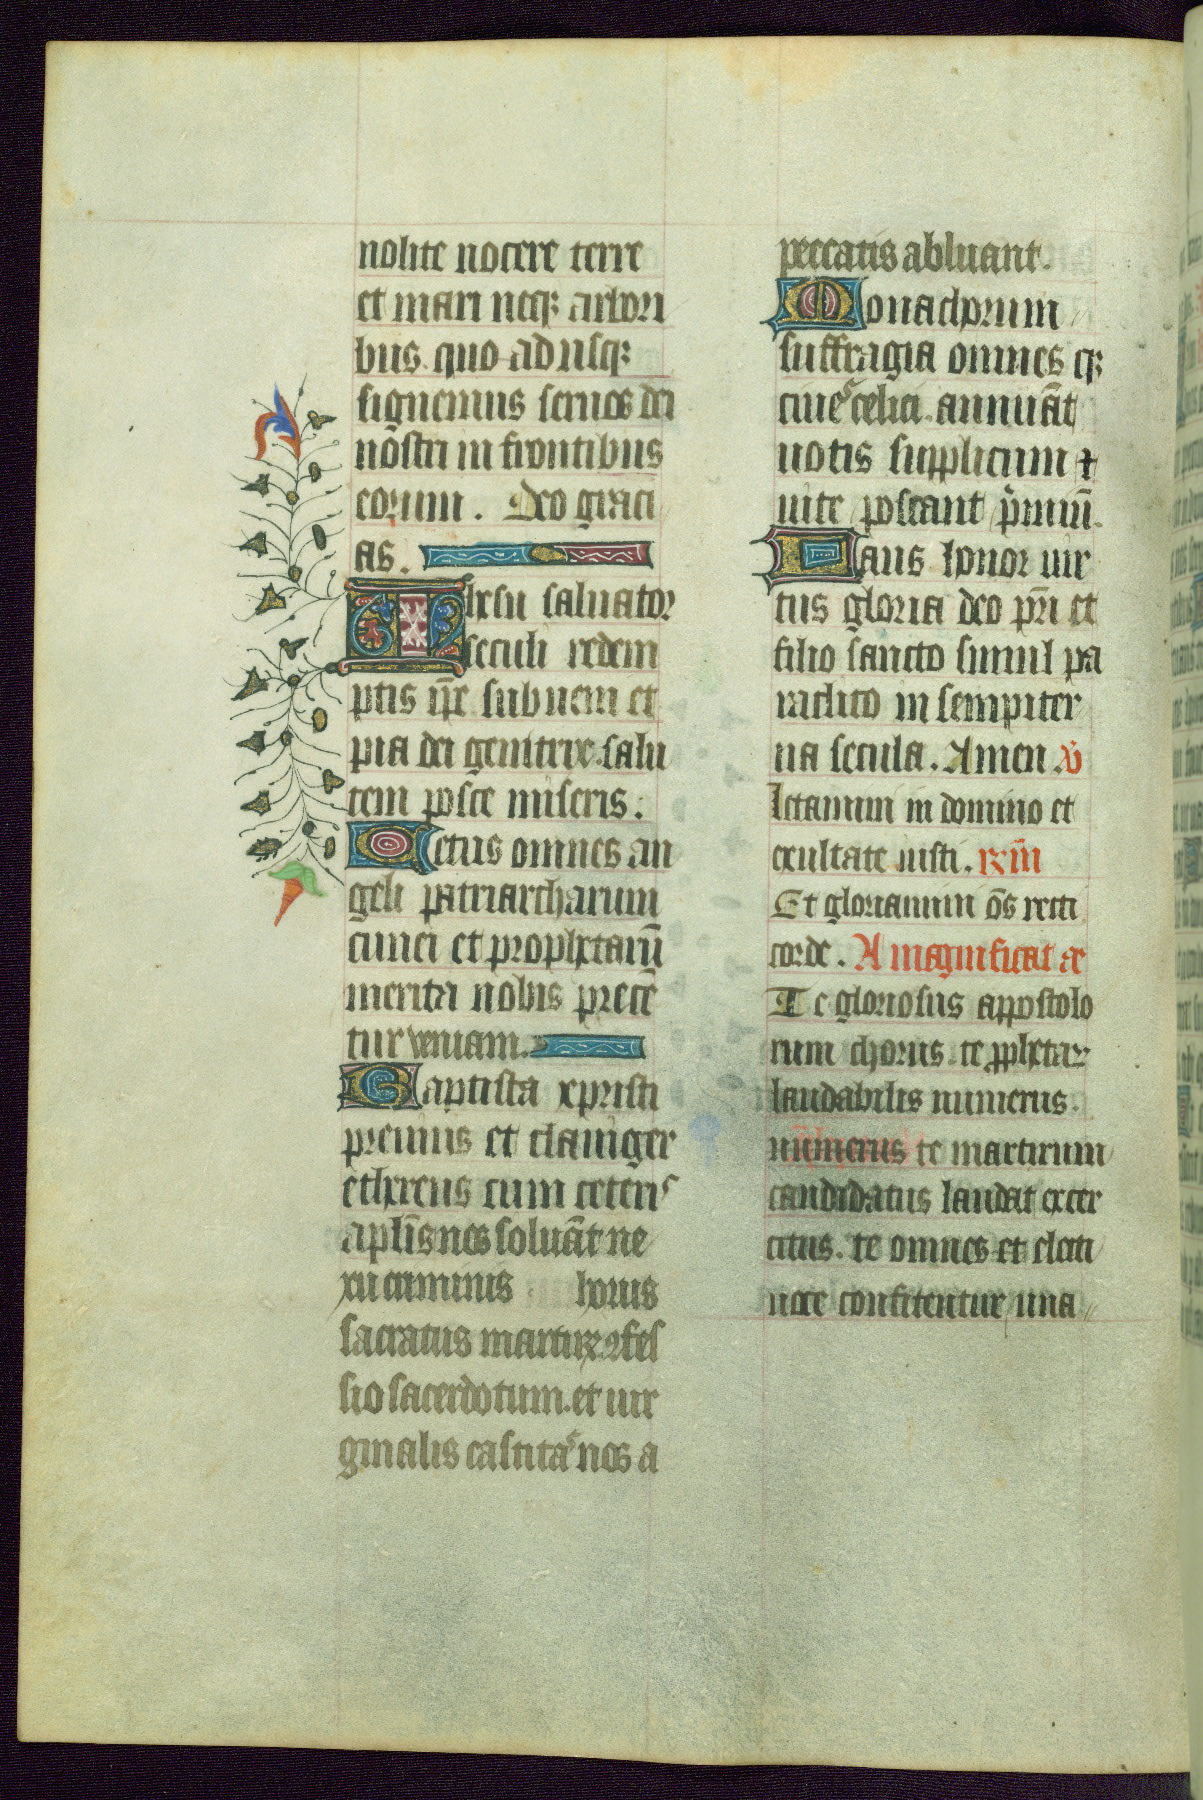 nolite nocere terre
et mari neq; arbori
bus quo ad usq;
signemus seruos dei
nostri in frontibus
eorum. Deo graci
as.
Ihesu saluator
seculi redem
ptis ope subueni et
pia dei genitrix salu
tem posce miseris.
Cetus omnes an
geli patriarcharum
cunei et prophetarū
merita nobis precē
tur veniam.
Baptista xpristi
preuius et clauiger
ethereus cum ceteris
aplīs nos soluāt ne
xu criminis horus
sacratus martirꝝ ꝯfes
sio sacerdotum et uir
ginalis castitas nos a
peccatis abluant.
Monachorum
suffragia omnes q;
ciues celici annuāt
uotis supplicum et
uite poscant p̄miū.
Laus honor uir
tus gloria deo pr̄i et
filio sancto simul pa
raclito in sempiter
na secula. Amen. v̄
Letamini in domino et
exultate iusti. rx̄m̄
Et gloriamini ōs recti
corde. A magnificat æ
Te gloriosus appostolo
rum chorus te ꝓphetaꝝ
laudabilis numerus.
numerus te martirum
candidatus laudat exer
citus. te omnes et electi
uoce confitentur una